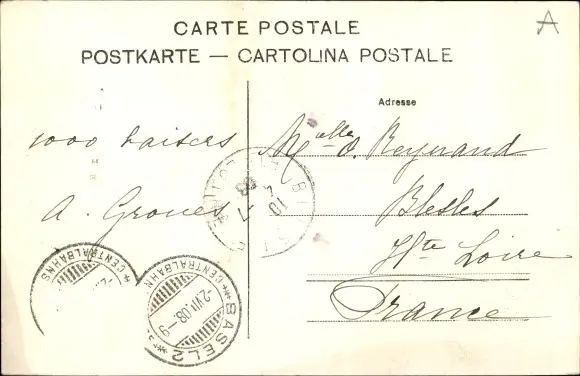 A
CARTE POSTALE
POSTKARTE — CARTOLINA POSTALE
Adresse
1000 baisers
A. Groues
Melle O. Reynaud
Blesles
Hte Loire
France
CENTRALBAHNS
BASEL 2
CENTRALBAHN
-2.VII.08.-9